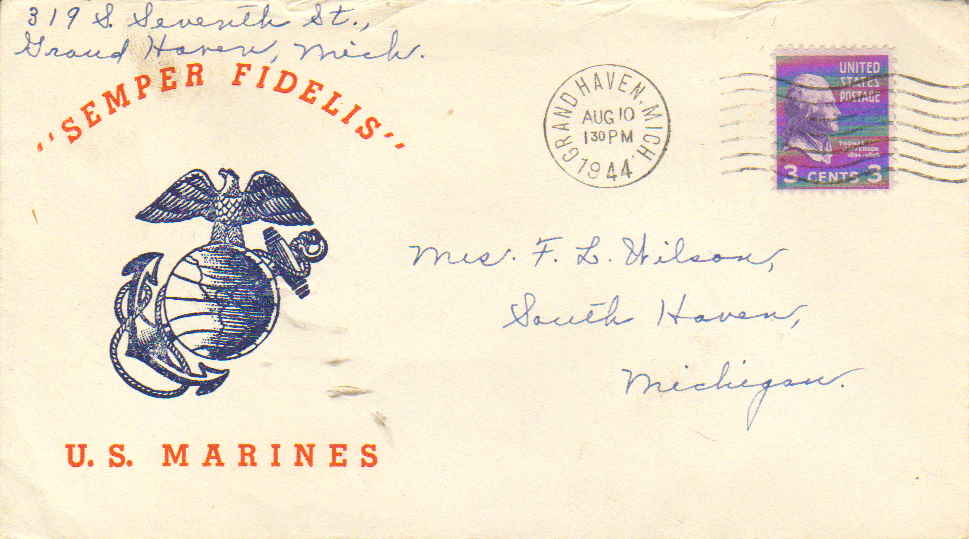 319 S. Seventh St.,
Grand Haven, Mich.
"SEMPER FIDELIS"
GRAND HAVEN, MICH.
AUG 10
1 30 PM
1944
UNITED
STATES
POSTAGE
THOMAS
JEFFERSON
3 CENTS 3
Mrs. F. L. Wilson,
South Haven,
Michigan.
U. S. MARINES